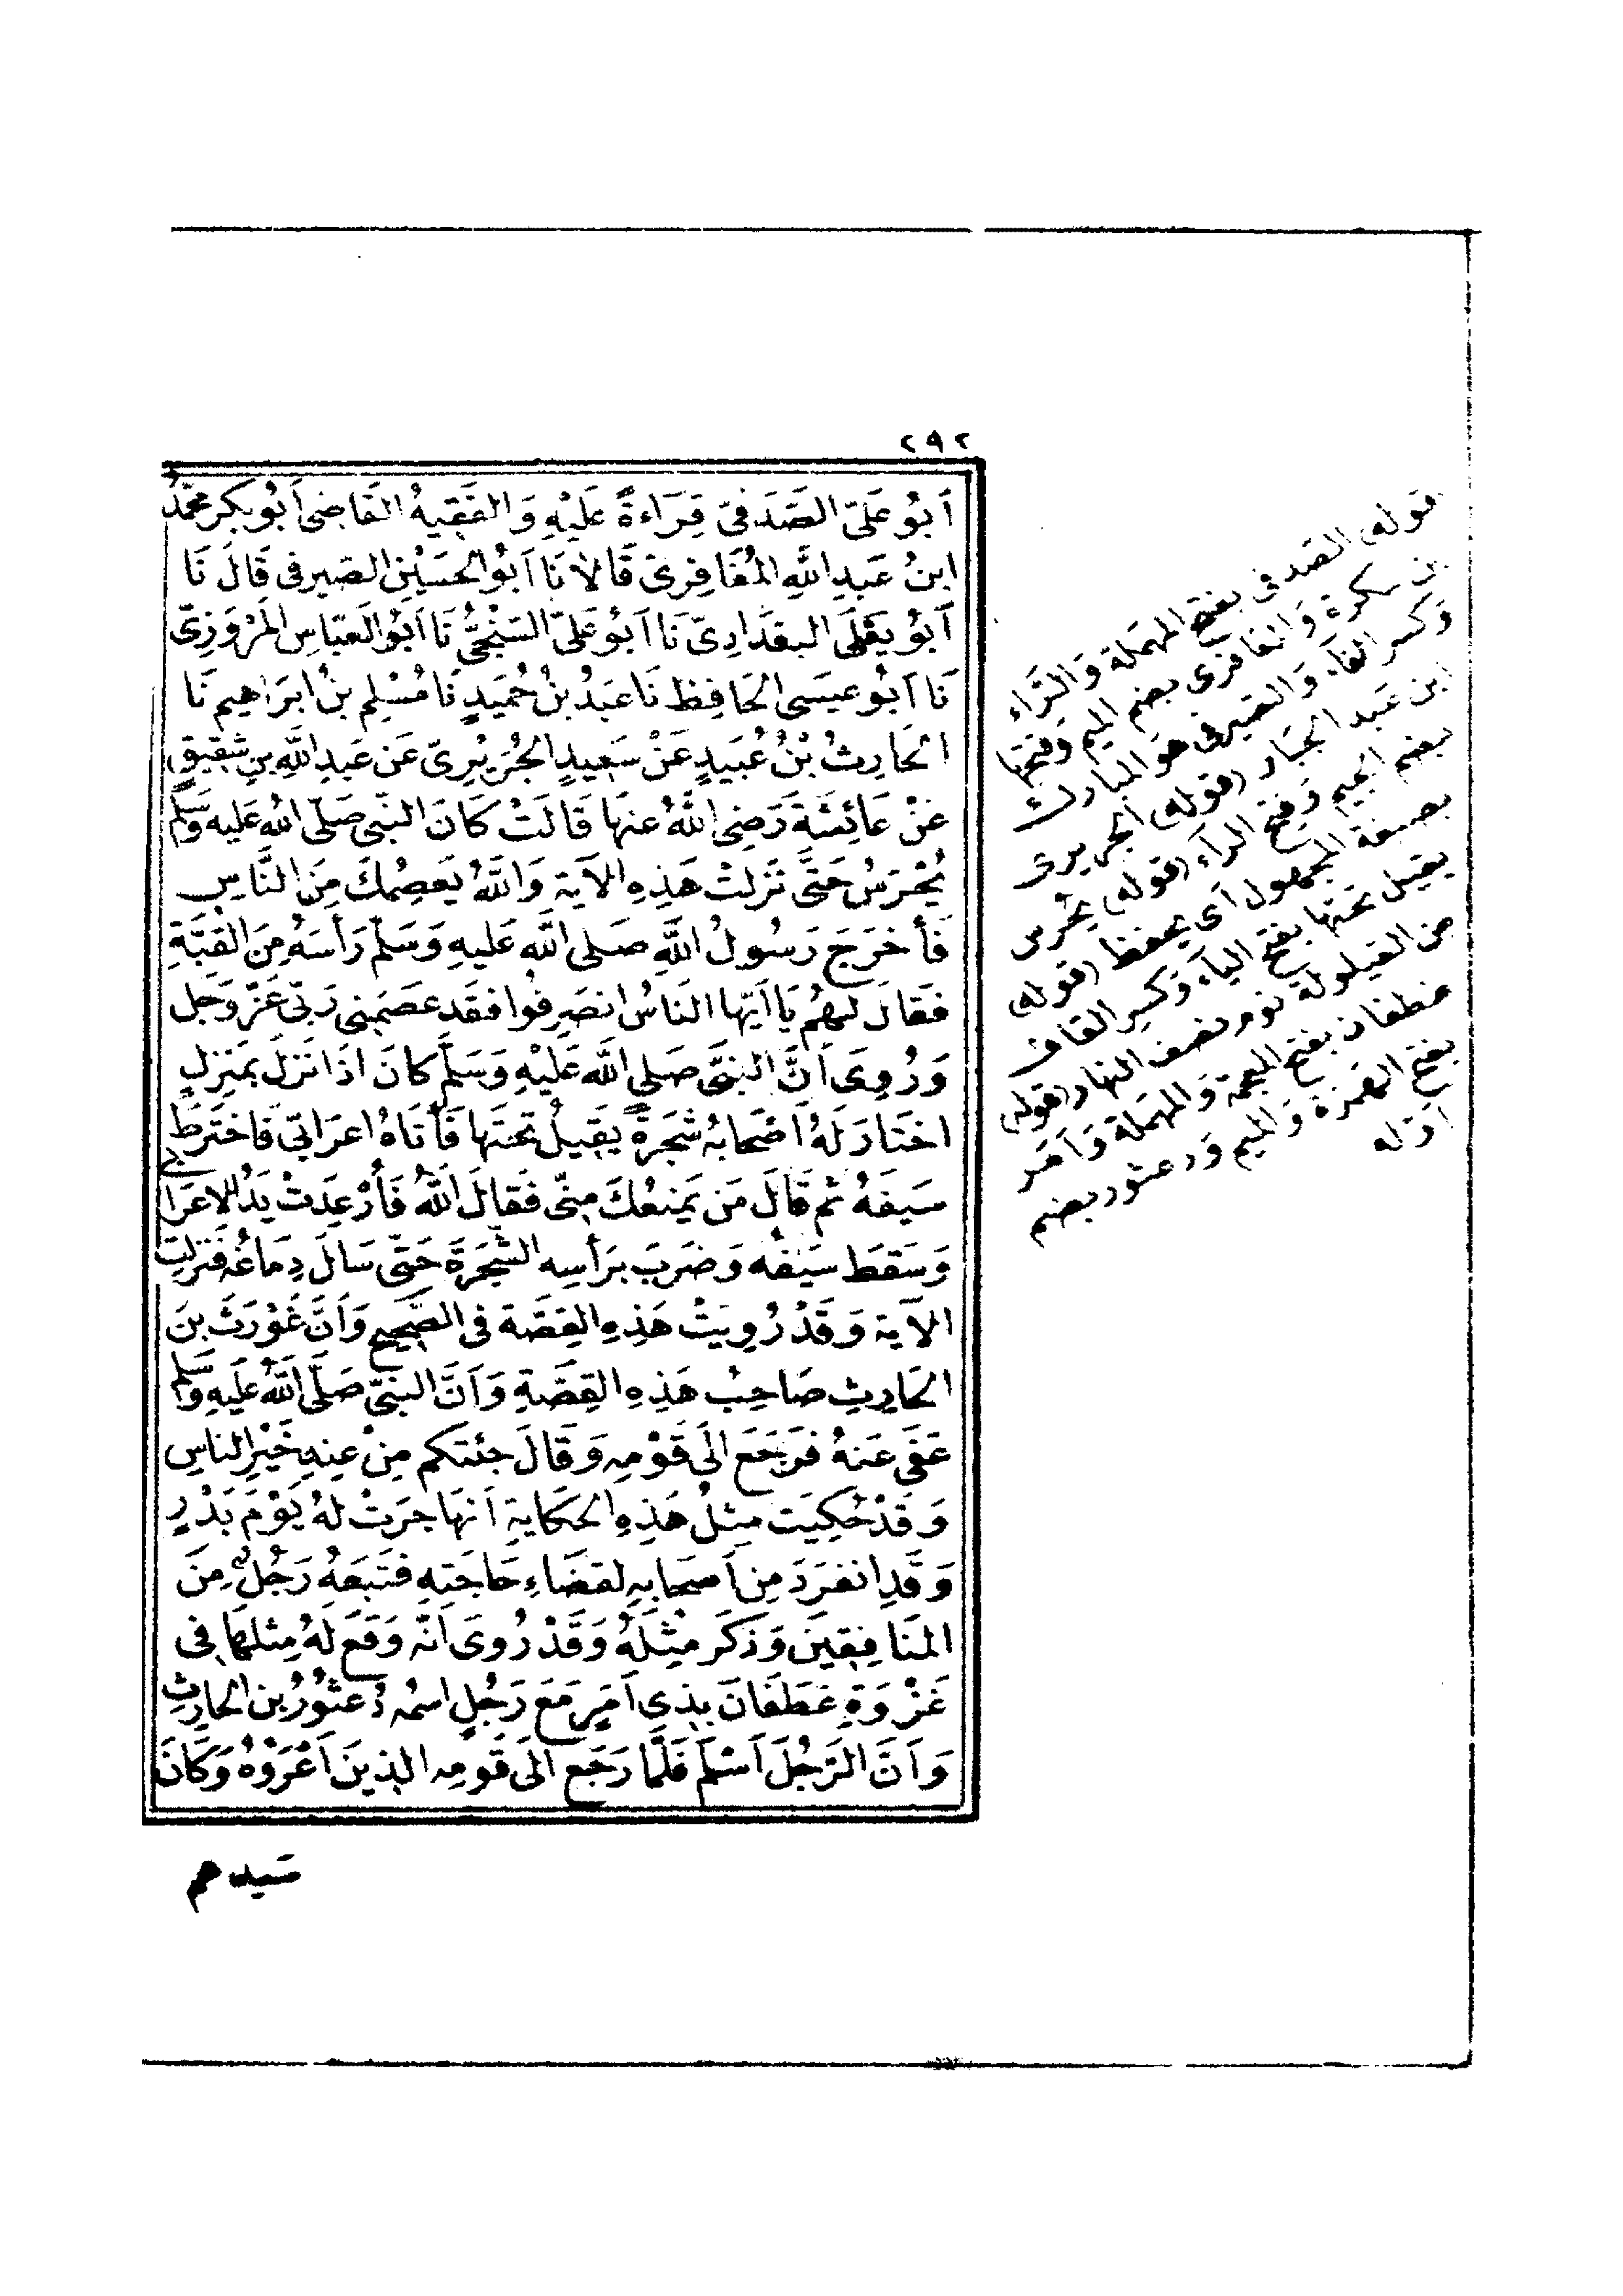 ٢٩٢
أَبُو عَلِىّ الصَّدَفىّ قِرَاءَةً عَلَيْهِ وَالفَقِيهُ القَاضِى أَبُو بَكر محَمّدُ
ابنُ عَبدِ اللَّهِ المُعَافِرِىّ قَالاَ نَا أَبُو الحَسَيْنِ الصَيرفى قَالَ نَا
أَبُو يَعْلَى البغدَادِىّ نَا أَبُو عَلىّ السّنْجىُّ نَا أَبُو العَبّاسِ المَرْوَزِىّ
نَا أَبُو عِيسَى الحَافِظ نَا عَبدُ بنُ حُمَيدٍ نَا مُسْلِم بنُ ابرَاهيم نَا
الحَارِثُ بْنُ عُبَيدٍ عَنْ سَعِيدٍ الجُرَيْرِىّ عَن عَبدِ اللَّهِ بنِ شَقِيقٍ
عَنْ عَائِشَةَ رَضِىَ اللَّهُ عنهَا قَالَتْ كَانَ النَبّى صَلّى اللَّهُ عَليه وَسَلم
يُحْرَسُ حَتَّى نَزَلتْ هَذِهِ الآيَة وَاللَّهُ يَعصِمُكَ مِنَ النَّاسِ
فَأخرَجَ رَسُولُ اللَّهِ صَلى اللَّه عَليهِ وَسَلمّ رَأسَهُ مِنَ القُبَّةِ
فَقَالَ لهُم يَا أَيّهَا النَاسُ انصَرِفُوا فقَد عَصَمَنِى رَبّى عَزَّ وَجَل
وَرُوِىَ أَنَّ النبىَّ صَلى اللَّه عَليْهِ وَسَلّم كانَ اذَا نَزلَ مَنزِلٍ
اختَارَ لَهُ أصْحَابُه شَجَرَةً يَقِيلُ تحتَهَا فَأتَاهُ اعرَابىّ فَاختَرَطَ
سَيفَهُ ثم قَالَ مَن يَمنعُكَ مِنّى فَقَالَ اللَّهُ فَأُرْعِدَتْ يَدُ الاعرَابى
وَسَقَطَ سَيْفُه وَضَرَبَ برَأسِه الشَّجَرَةَ حَتّى سَالَ دِمَاغُه فَنَزلَتِ
الآيَة وَقَدْ رُوِيَتْ هَذِهِ القِصَّة فى الصَّحِيحِ وَأنَّ غَوْرَثَ بنَ
الحَارِثِ صَاحِبُ هَذِهِ القِصَّةِ وَأنَّ النبىّ صَلّى اللَّهُ عَلَيهِ وَسَلم
عَفَى عَنهُ فَرَجَعَ الَى قَوْمِه وَقَالَ جئتكم مِنْ عِندِ خَيْرِ الناسِ
وَقَدْ حُكِيَت مِثلُ هَذِهِ الحكَايَةِ أَنهَا جرَتْ لهُ يَوْمَ بَدْرٍ
وَقَدِ انفرَدَ مِن أَصحَابِهِ لقضَاءِ حَاجَتِهِ فَتَبعَهُ رَجُلٌ مِنَ
المنَافِقِينَ وَذَكَرَ مِثْلَهُ وَقَدْ رُوىَ أنّه وَقعَ لَهُ مِثلهَا فى
غَزْوَةِ غَطَفَانَ بِذِى أَمَرٍ مَعَ رَجُلٍ اسمُه دُعثُورُ بن الحَارِثِ
وَأَنَّ الرَّجُلَ أَسْلَمَ فَلَمَّا رَجَعَ الَى قَومِه الذِينَ أَغْرَوْهُ وَكَانَ
سَيدهم
قوله الصَدفى بفتح المهملة وَالرّاء
بن سكرة وَالمعافرى بضم الميم وَفتحها
وَكسر الفاء وَالصَيرفى هوَ المبارك
ابن عَبد الجبَار (قوله) الجريرى
بضم الجيم وَفتح الراء (قوله) يحرس
بصيغة المجهول أى يحفظ (قوله)
يقيل تحتها بفتح الياء وَكسر القاف
من القيلولة نوم نصف النهار (قوله)
غطفان بفتح المعجمة وَالمهملة وَأمر
بفتح الهمزة وَالميم وَدعثور بضم
أوّله